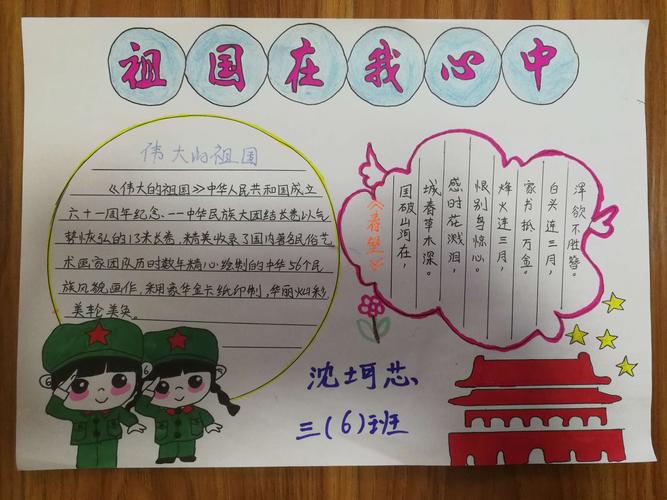 祖国在我心中
伟大的祖国
《伟大的祖国》中华人民共和国成立
六十一周年纪念、一一中华民族大团结长卷以气
势恢弘的13米长卷,精美收录了国内著名民俗艺
术画家团队历时数年精心绘制的中华56个民
族风貌画作,采用豪华金卡纸印制,华丽灿彩
美轮美奂。
《春望》
国破山河在,
城春草木深。
感时花溅泪,
恨别鸟惊心。
烽火连三月,
家书抵万金。
白头连三月,
浑欲不胜簪。
沈珥芯
三(6)班